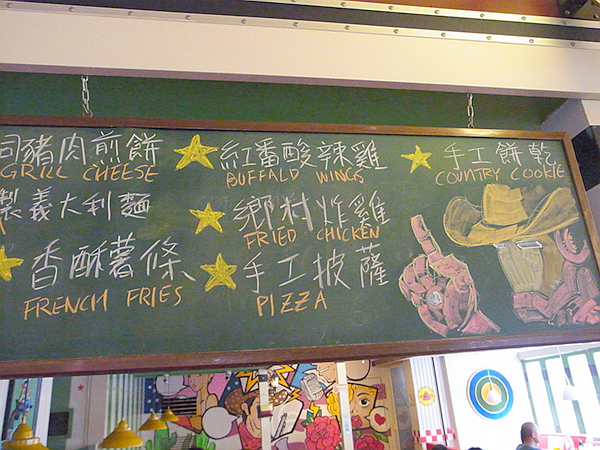 豬肉煎餅
GRILL CHEESE
製義大利麵
香酥薯條
FRENCH FRIES
紅番酸辣雞
BUFFALO WINGS
鄉村炸雞
FRIED CHICKEN
手工披薩
PIZZA
手工餅乾
COUNTRY COOKIE